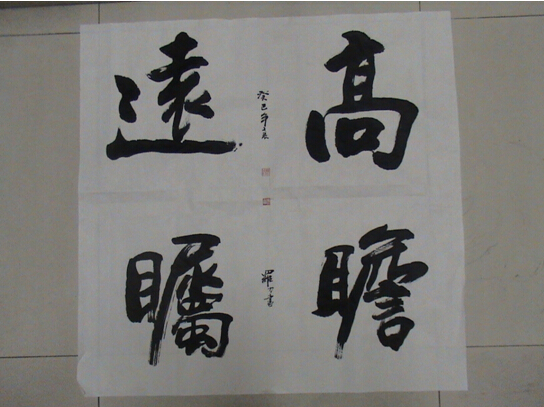 高瞻
遠矚
癸巳年
書